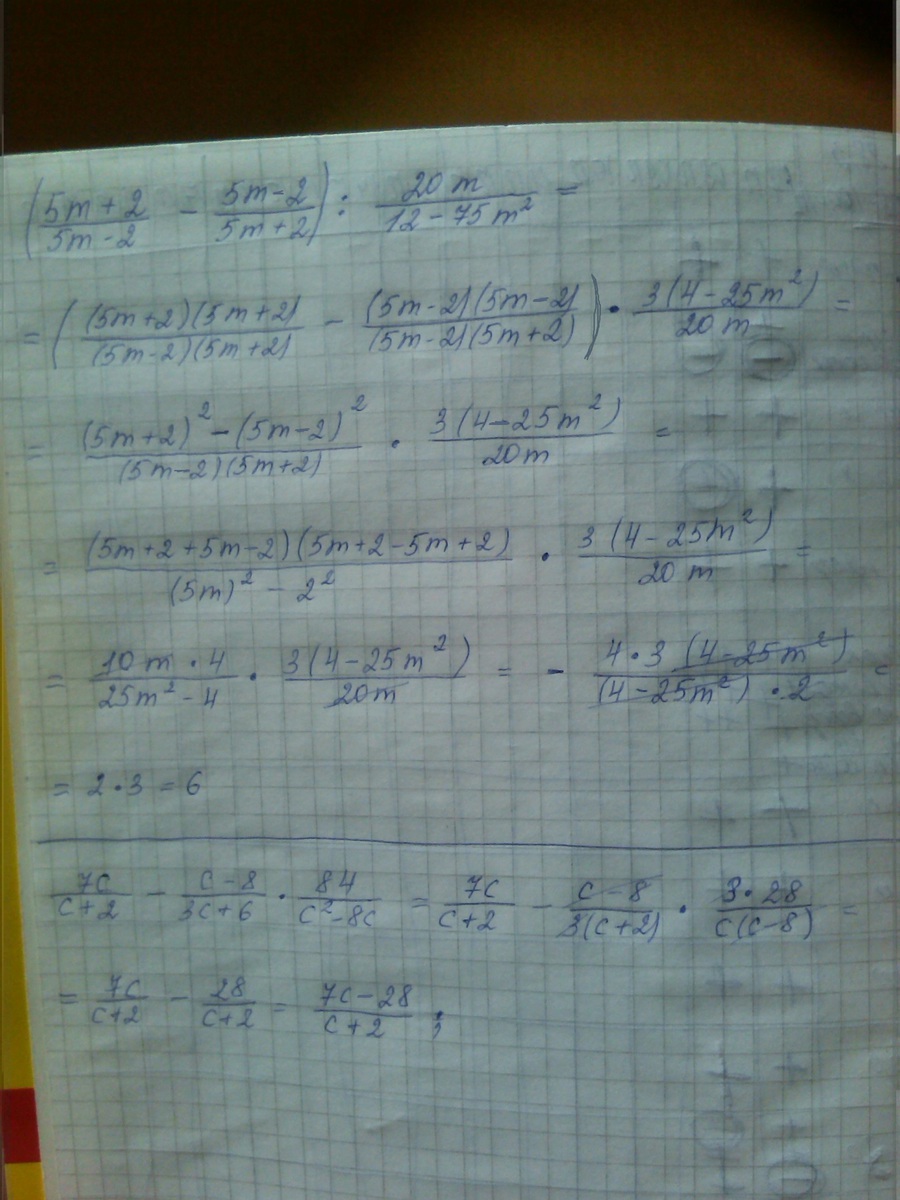 (5m+2/5m-2 - 5m-2/5m+2) : 20m/12-75m² =
= ((5m+2)(5m+2)/(5m-2)(5m+2) - (5m-2)(5m-2)/(5m-2)(5m+2)) · 3(4-25m²)/20m =
= (5m+2)²-(5m-2)²/(5m-2)(5m+2) · 3(4-25m²)/20m =
= (5m+2+5m-2)(5m+2-5m+2)/(5m)²-2² · 3(4-25m²)/20m =
= 10m·4/25m²-4 · 3(4-25m²)/20m = - 4·3(4-25m²)/(4-25m²)·2 =
= 2·3 = 6
7c/c+2 - c-8/3c+6 · 84/c²-8c = 7c/c+2 - c-8/3(c+2) · 3·28/c(c-8) =
= 7c/c+2 - 28/c+2 = 7c-28/c+2 ;